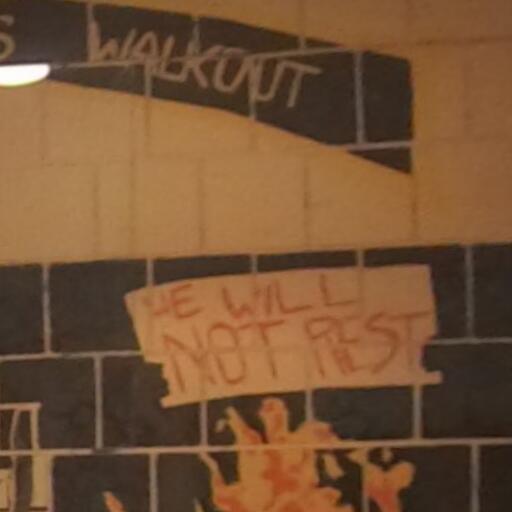 S WALKOUT
WE WILL
NOT REST